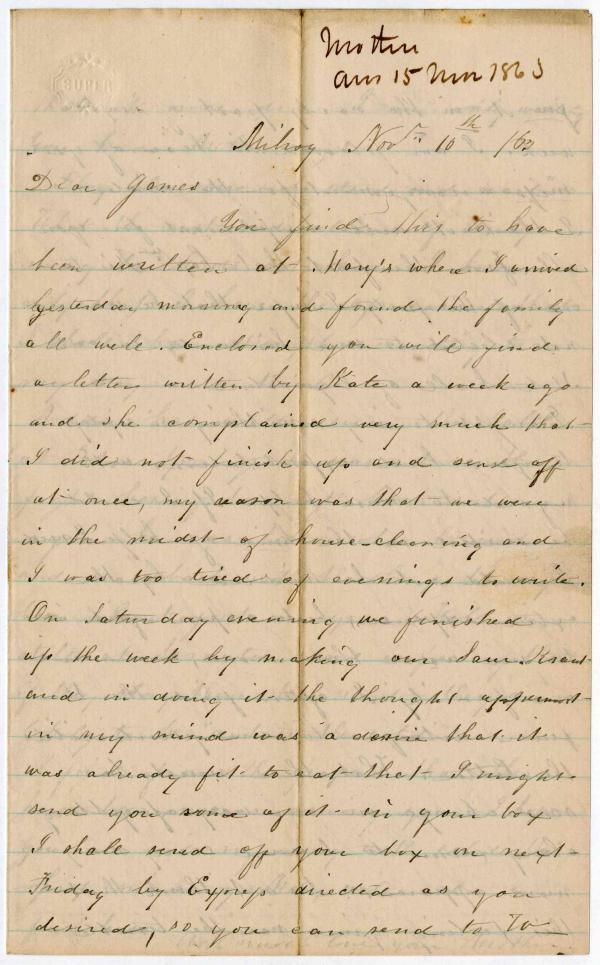 SUPER
Mother
Ans 15 Nov 1863
Milroy Nov.r 10th /63
Dear James
You find this to have
been written at Mary's where I arrived
yesterday morning and found the family
all well. Enclosed you will find
a letter written by Kate a week ago
and she complained very much that
I did not finish up and send off
at once, my reason was that we were
in the midst of house-cleaning and
I was too tired of evenings to write.
On Saturday evening we finished
up the week by making our Sour Kraut
and in doing it the thought uppermost
in my mind was a desire that it
was already fit to eat that I might
send you some of it in your box
I shall send off your box on next
Friday by Express directed as you
desired, so you can send to To